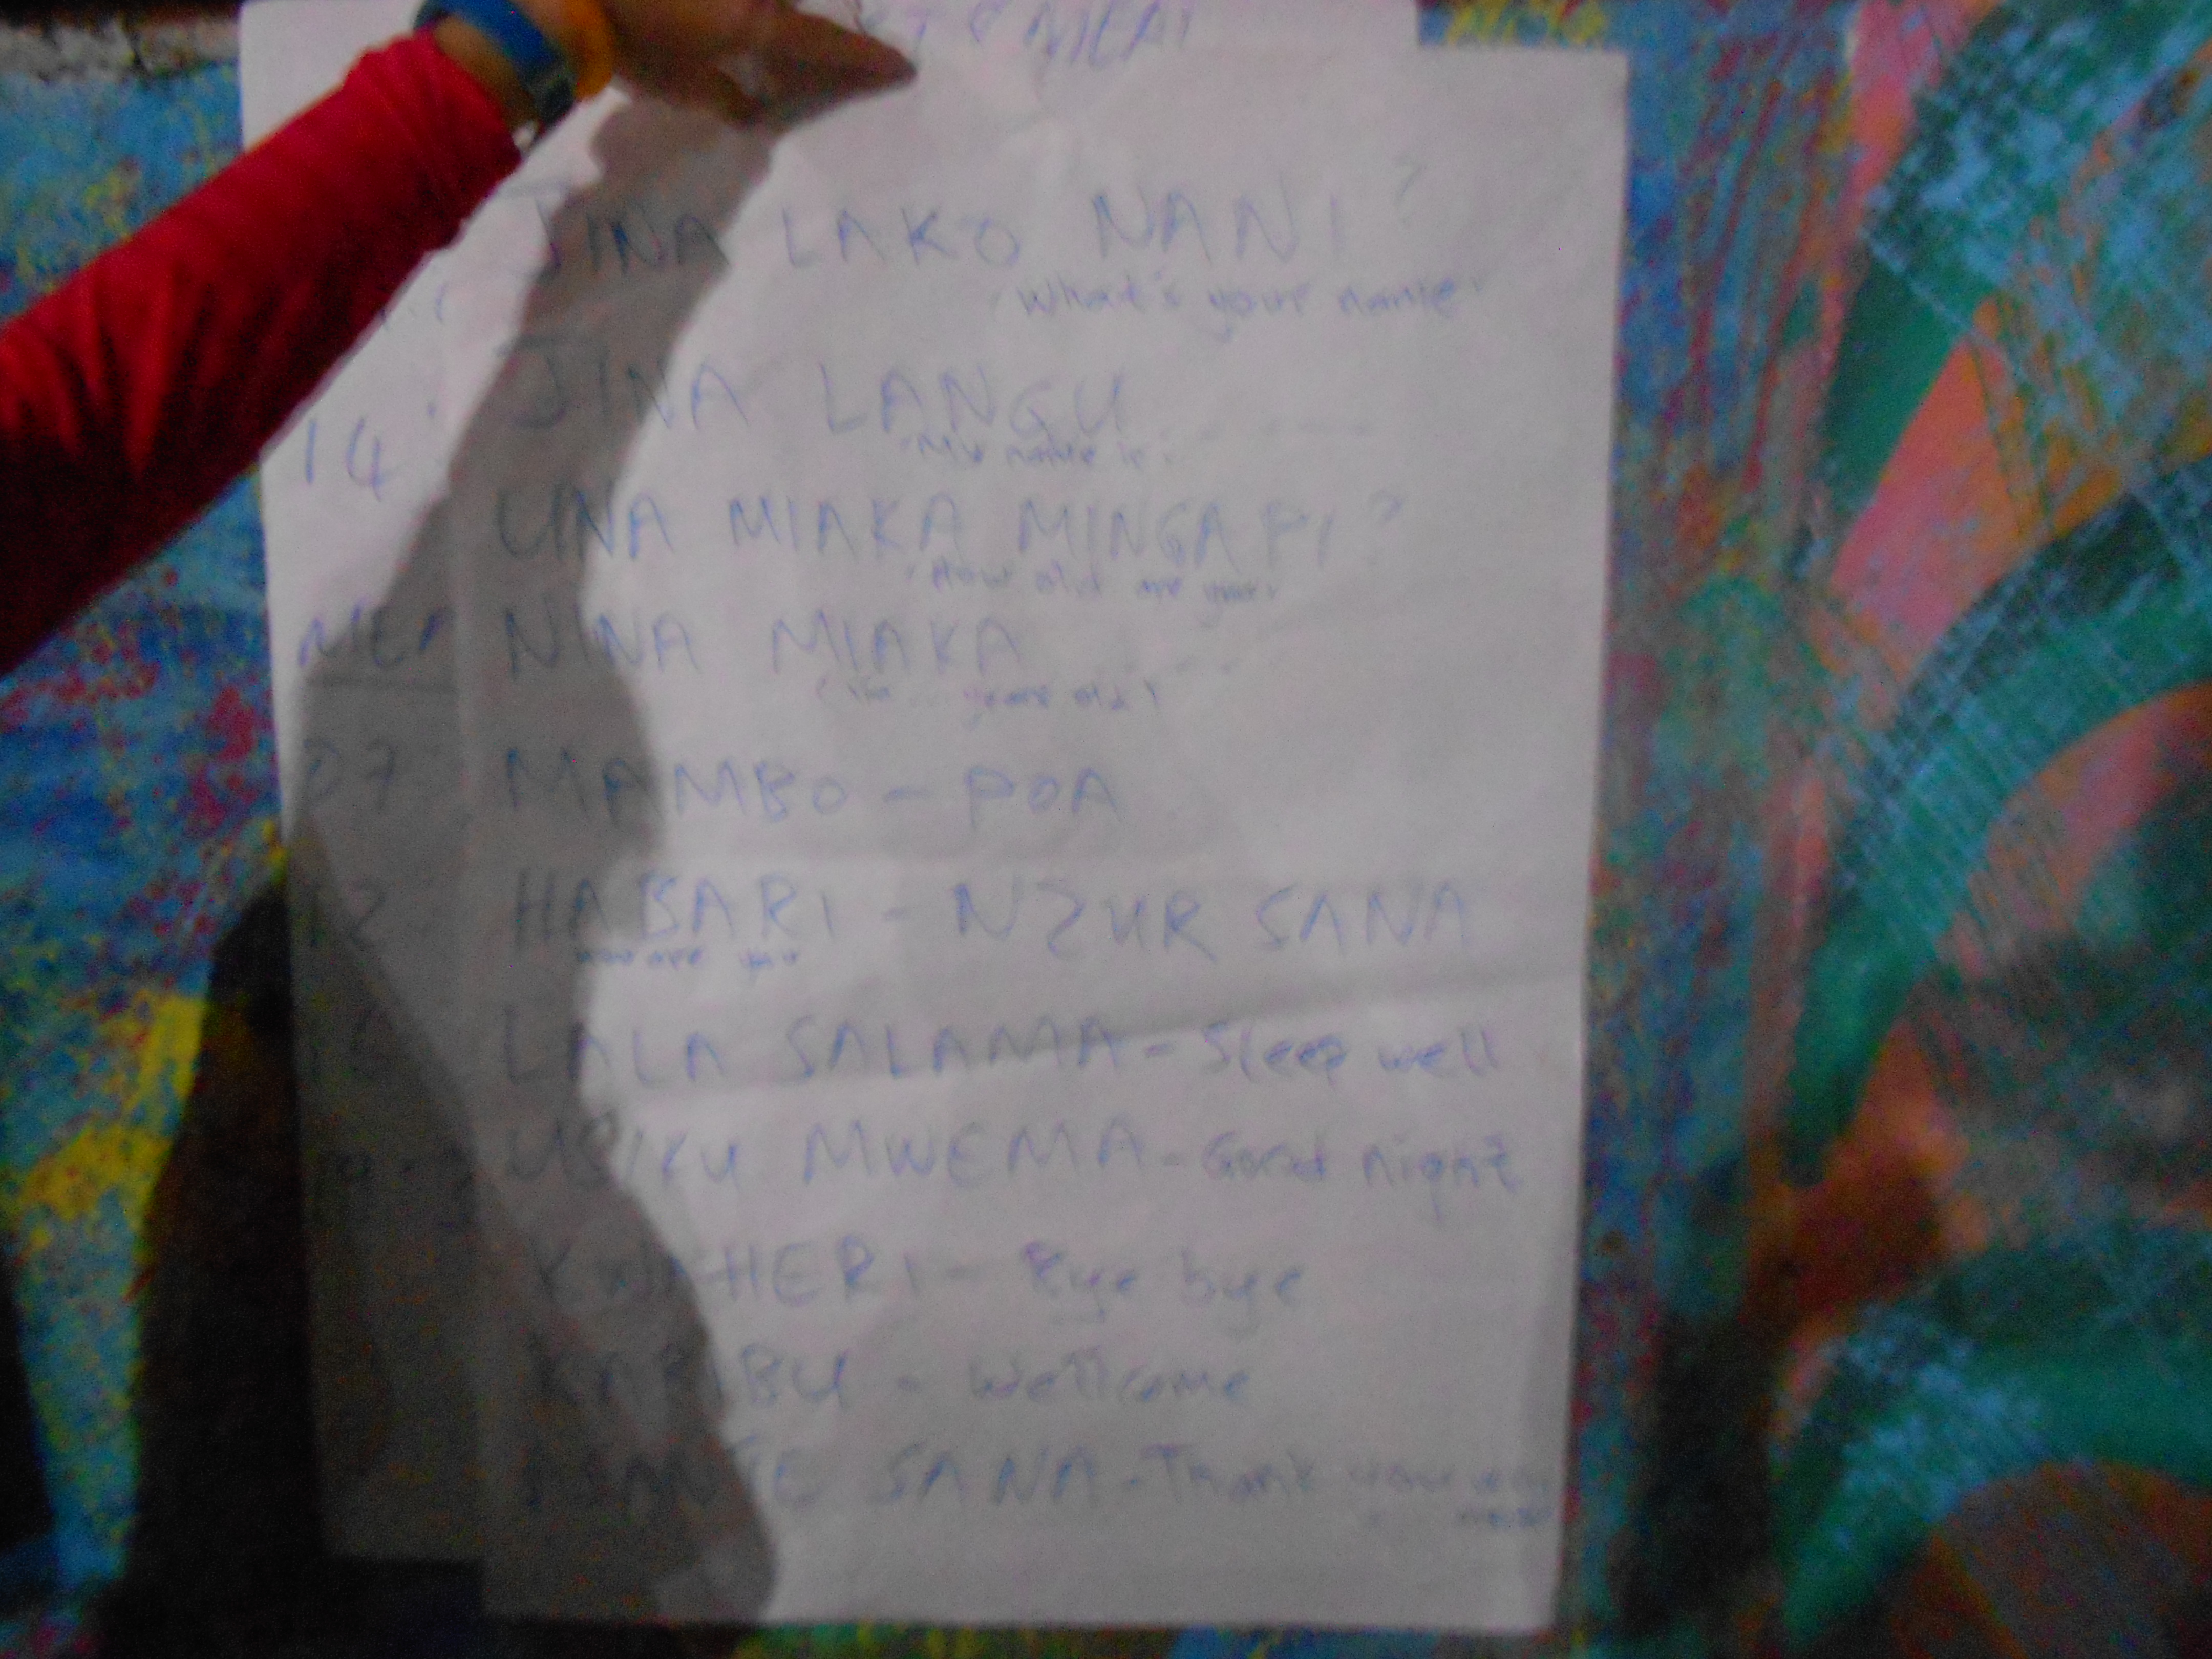 JINA LAKO NANI?
'What's your name'
JINA LANGU ......
'My name is'
14
UNA MIAKA MINGAPI?
'How old are you'
NINA MIAKA ......
(I'm ... years old)
27
MAMBO - POA
12
HABARI - NZUR SANA
how are you
LALA SALAMA - Sleep well
USIKU MWEMA - Good night
KWAHERI - Bye bye
KARIBU - Wellcome
SANTE SANA - Thank you